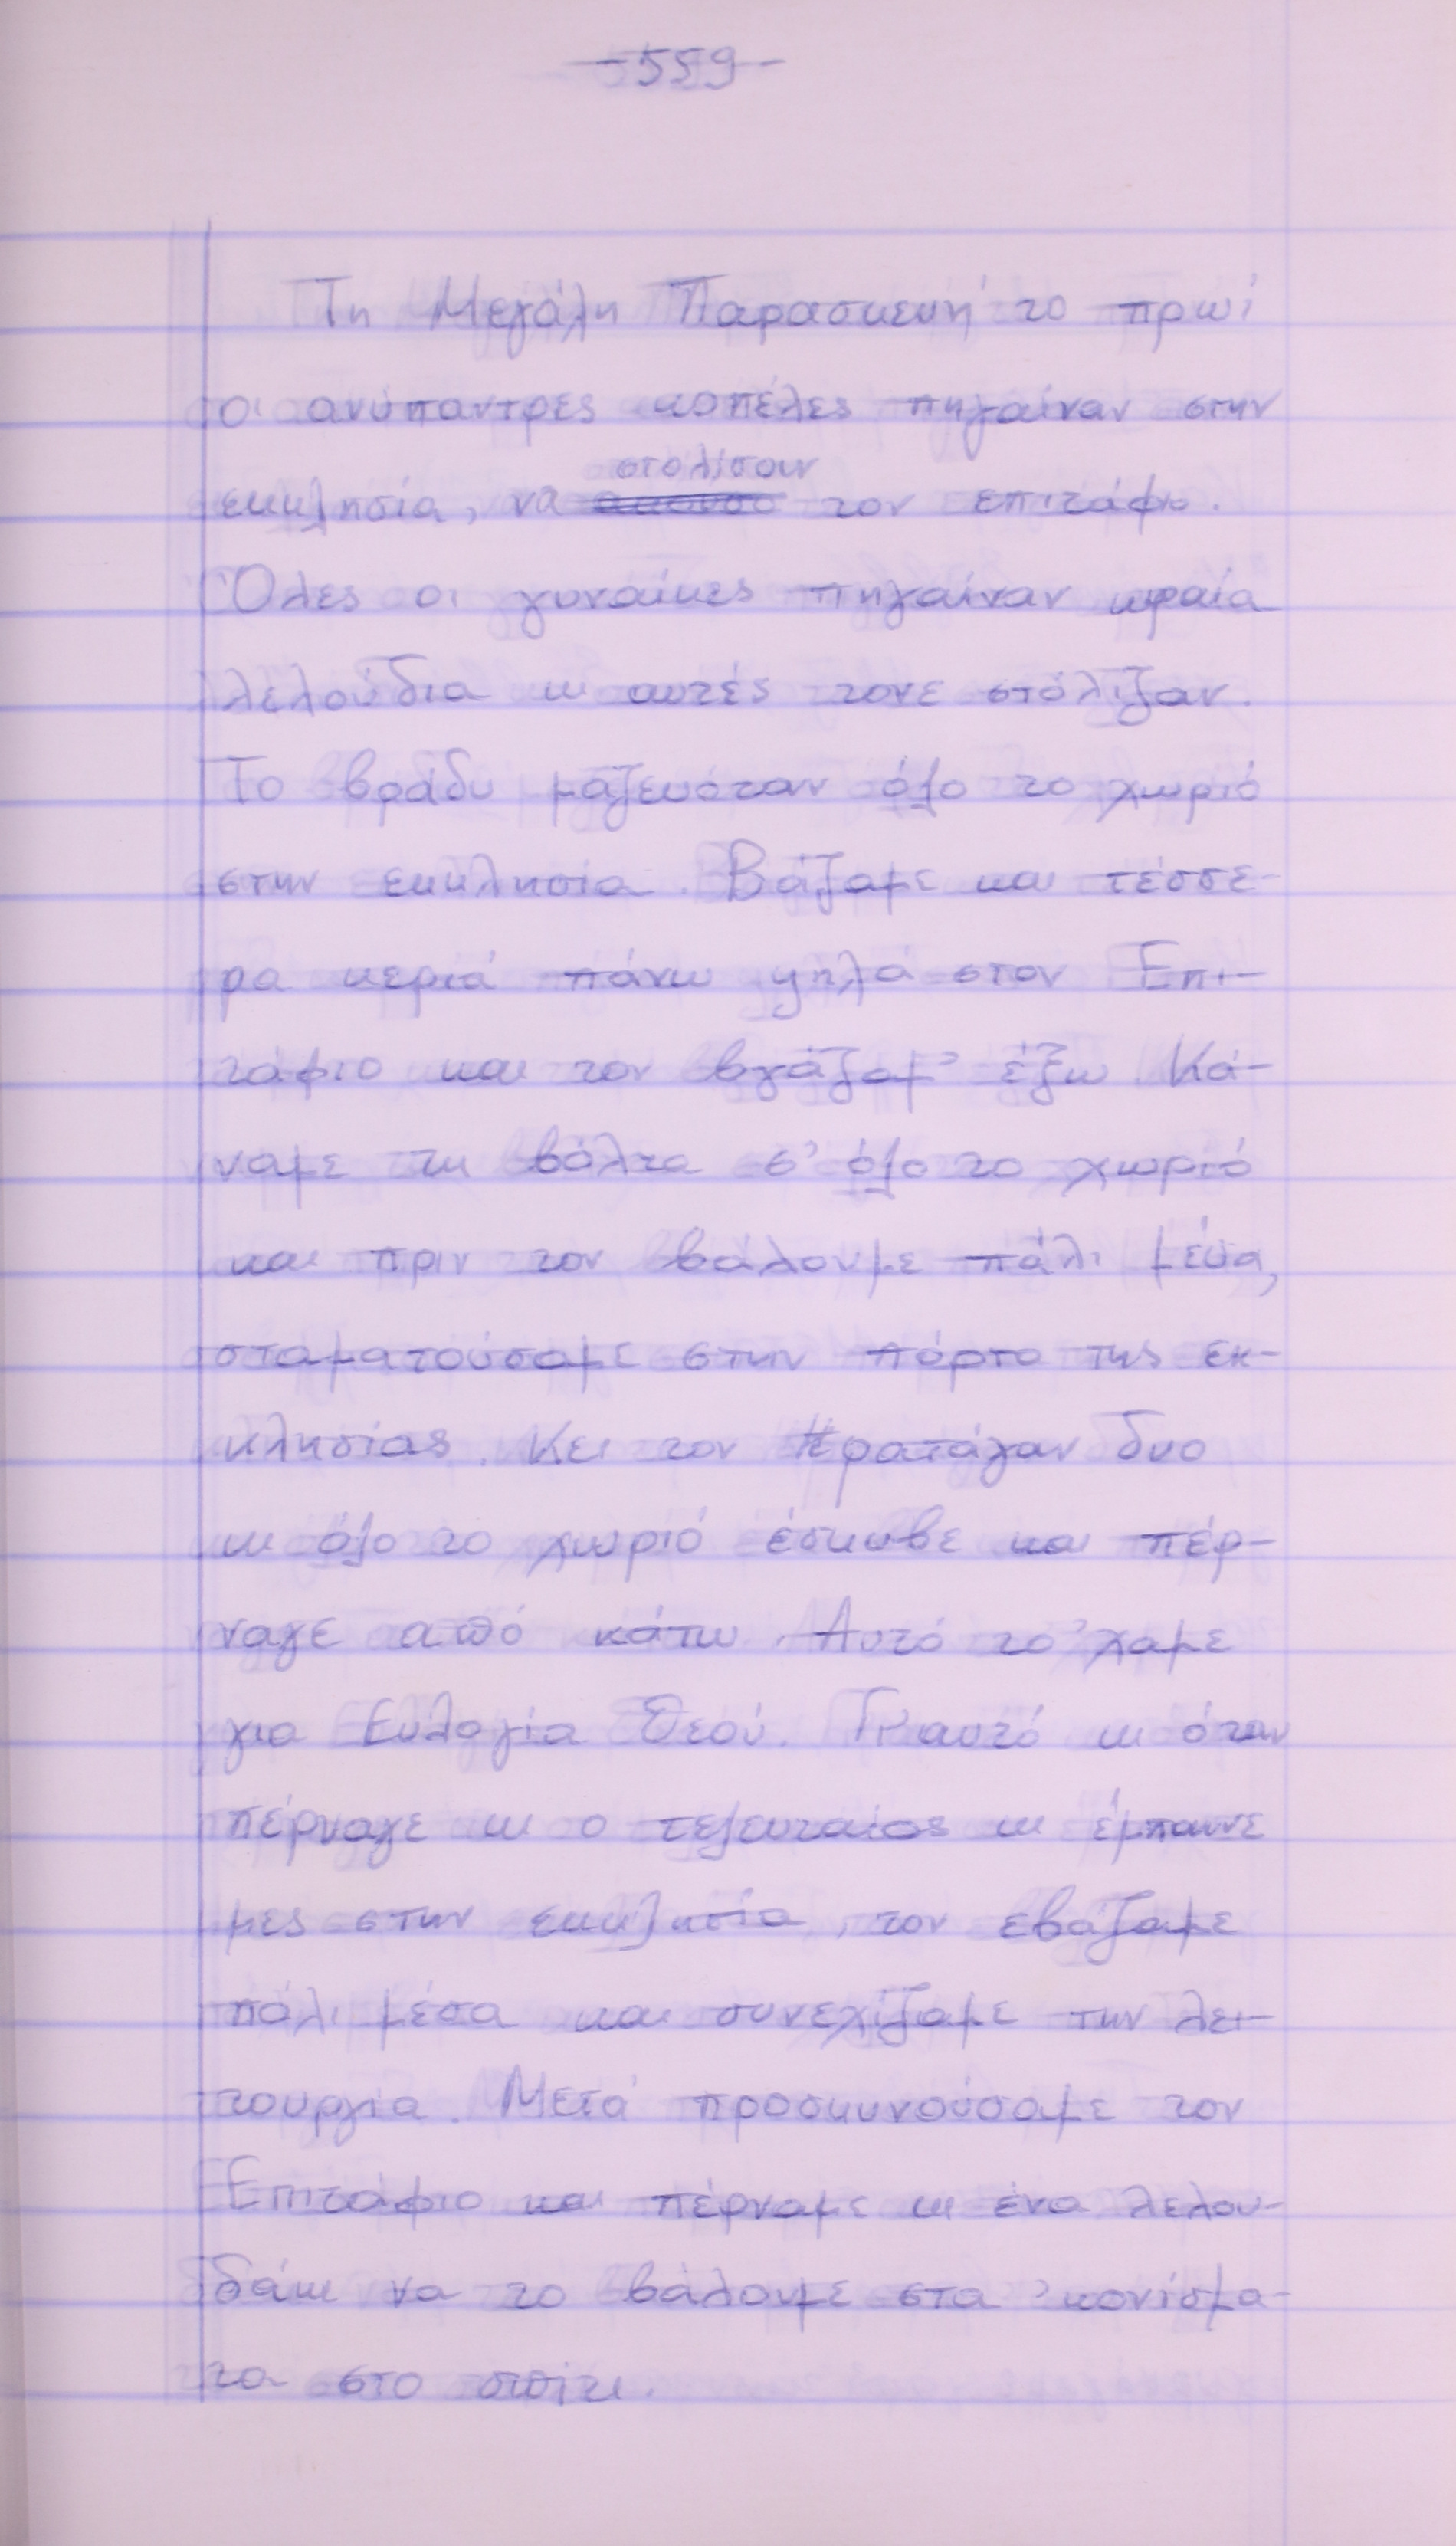 -559-
Τη Μεγάλη Παρασκευή το πρωί
οι ανύπαντρες κοπέλες πηγαίναν στην
στολίσουν
εκκλησία, να τον επιτάφιο.
Όλες οι γυναίκες πηγαίναν ωραία
λελούδια κι αυτές τονε στόλιζαν.
Το βράδυ μαζευόταν όλο το χωριό
στην εκκλησία. Βάζαμε και τέσσε-
ρα κεριά πάνω ψηλά στον Επι-
τάφιο και τον βγάζαμ' έξω. Κά-
ναμε τη βόλτα σ' όλο το χωριό
και πριν τον βάλουμε πάλι μέσα,
σταματούσαμε στην πόρτα της εκ-
κλησίας. Κει τον κρατάγαν δυο
κι όλο το χωριό έσκυβε και πέρ-
ναγε από κάτω. Αυτό το 'χαμε
για Ευλογία Θεού. Γι' αυτό κι όταν
πέρναγε κι ο τελευταίος κι έμπαινε
μες στην εκκλησία, τον εβάζαμε
πάλι μέσα και συνεχίζαμε την λει-
τουργία. Μετά προσκυνούσαμε τον
Επιτάφιο και πέρναμε κι ένα λελου-
δάκι να το βάλουμε στα 'κονίσμα-
τα στο σπίτι.